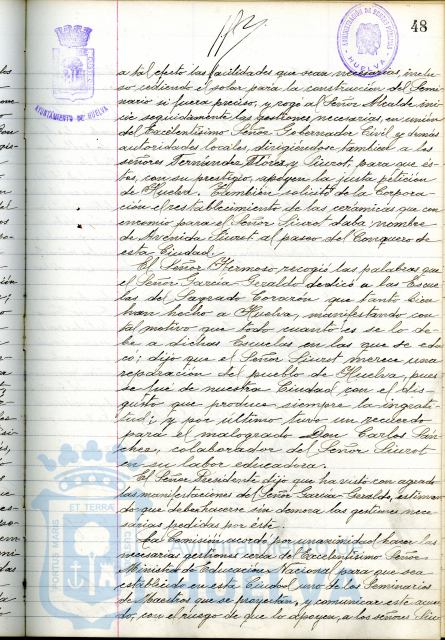 48
AYUNTAMIENTO DE HUELVA
HUELVA
a tal efecto las facilidades que sean necesarias, inclu-
so cediendo el solar para la construcción del Semi-
nario si fuera preciso, y rogó al Señor Alcalde ini-
cie seguidamente las gestiones necesarias, en unión
del Excelentísimo Señor Gobernador Civil y demás
autoridades locales, dirigiéndose también a los
señores Fernández Flórez y Siurot, para que és-
tos, con su prestigio, apoyen la justa petición
de Huelva. También solicitó de la Corpora-
ción el restablecimiento de las cerámicas que con
encomio para el Señor Siurot daba nombre
de Avenida Siurot al paseo del Conquero de
esta Ciudad.
El Señor Hermoso, recogió las palabras que
el Señor García Geraldo dedicó a las Escue-
las del Sagrado Corazón que tanto bien
han hecho a Huelva, manifestando con
tal motivo que todo cuanto es se lo de-
be a dichas Escuelas en las que se edu-
có; dijo que el Señor Siurot merece una
reparación del pueblo de Huelva, pues
se fué de nuestra Ciudad con el dis-
gusto que produce siempre la ingrati-
tud; y por último tuvo un recuerdo
para el malogrado Don Carlos Sán-
chez, colaborador del Señor Siurot
en su labor educadora.
El Señor Presidente dijo que ha visto con agrado
las manifestaciones del Señor García Geraldo, estiman-
do que deben hacerse sin demora las gestiones nece-
sarias pedidas por éste.
La Comisión acordó por unanimidad hacer las
necesarias gestiones cerca del Excelentísimo Señor
Ministro de Educación Nacional para que sea
establecido en esta Ciudad uno de los Seminarios
de Maestros que se proyectan, y comunicar este acuer-
do, con el ruego de que la apoyen, a los señores Siu-
PORTUS MARIS ET TERRAE CUSTODIA
HUELVA